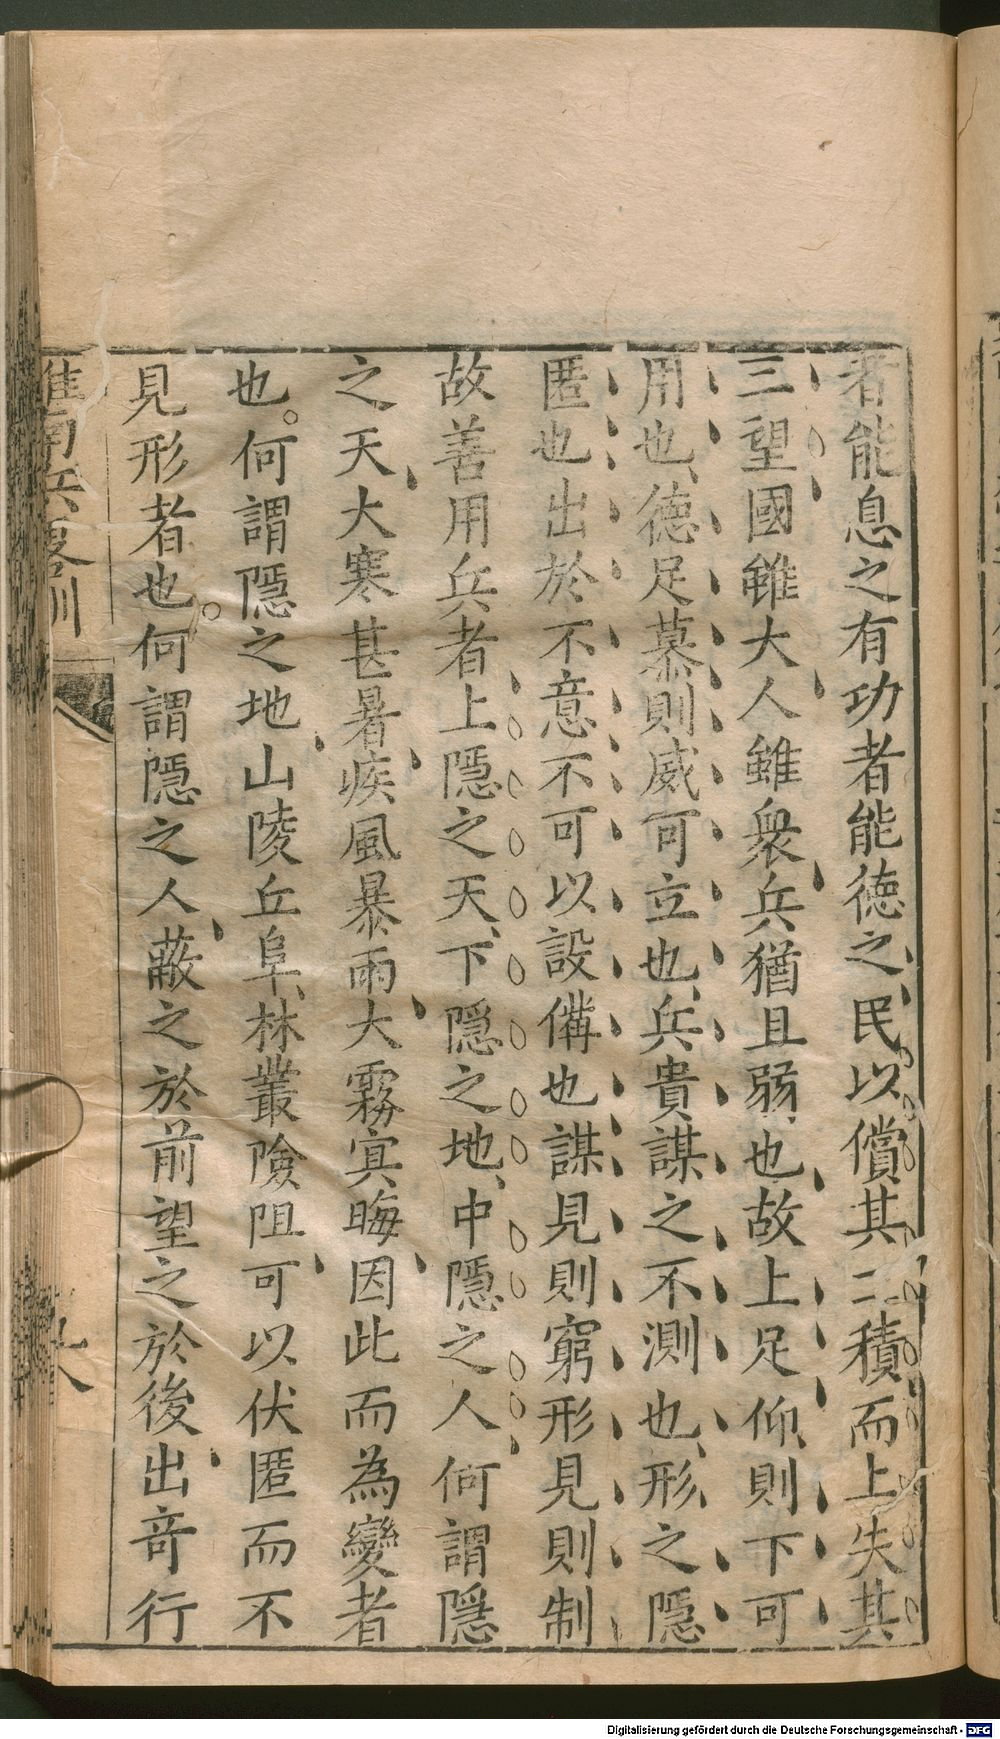 者能息之有功者能德之民以償其二積而上失其
三望國雖大人雖衆兵猶且弱也故上足仰則下可
用也德足慕則威可立也兵貴謀之不測也形之隱
匿也出於不意不可以設備也謀見則窮形見則制
故善用兵者上隱之天下隱之地中隱之人何謂隱
之天大寒甚暑疾風暴雨大霧冥晦因此而為變者
也。何謂隱之地山陵丘阜林叢險阻可以伏匿而不
見形者也。何謂隱之人蔽之於前望之於後出奇行
淮南兵畧訓
Digitalisierung gefördert durch die Deutsche Forschungsgemeinschaft - DFG